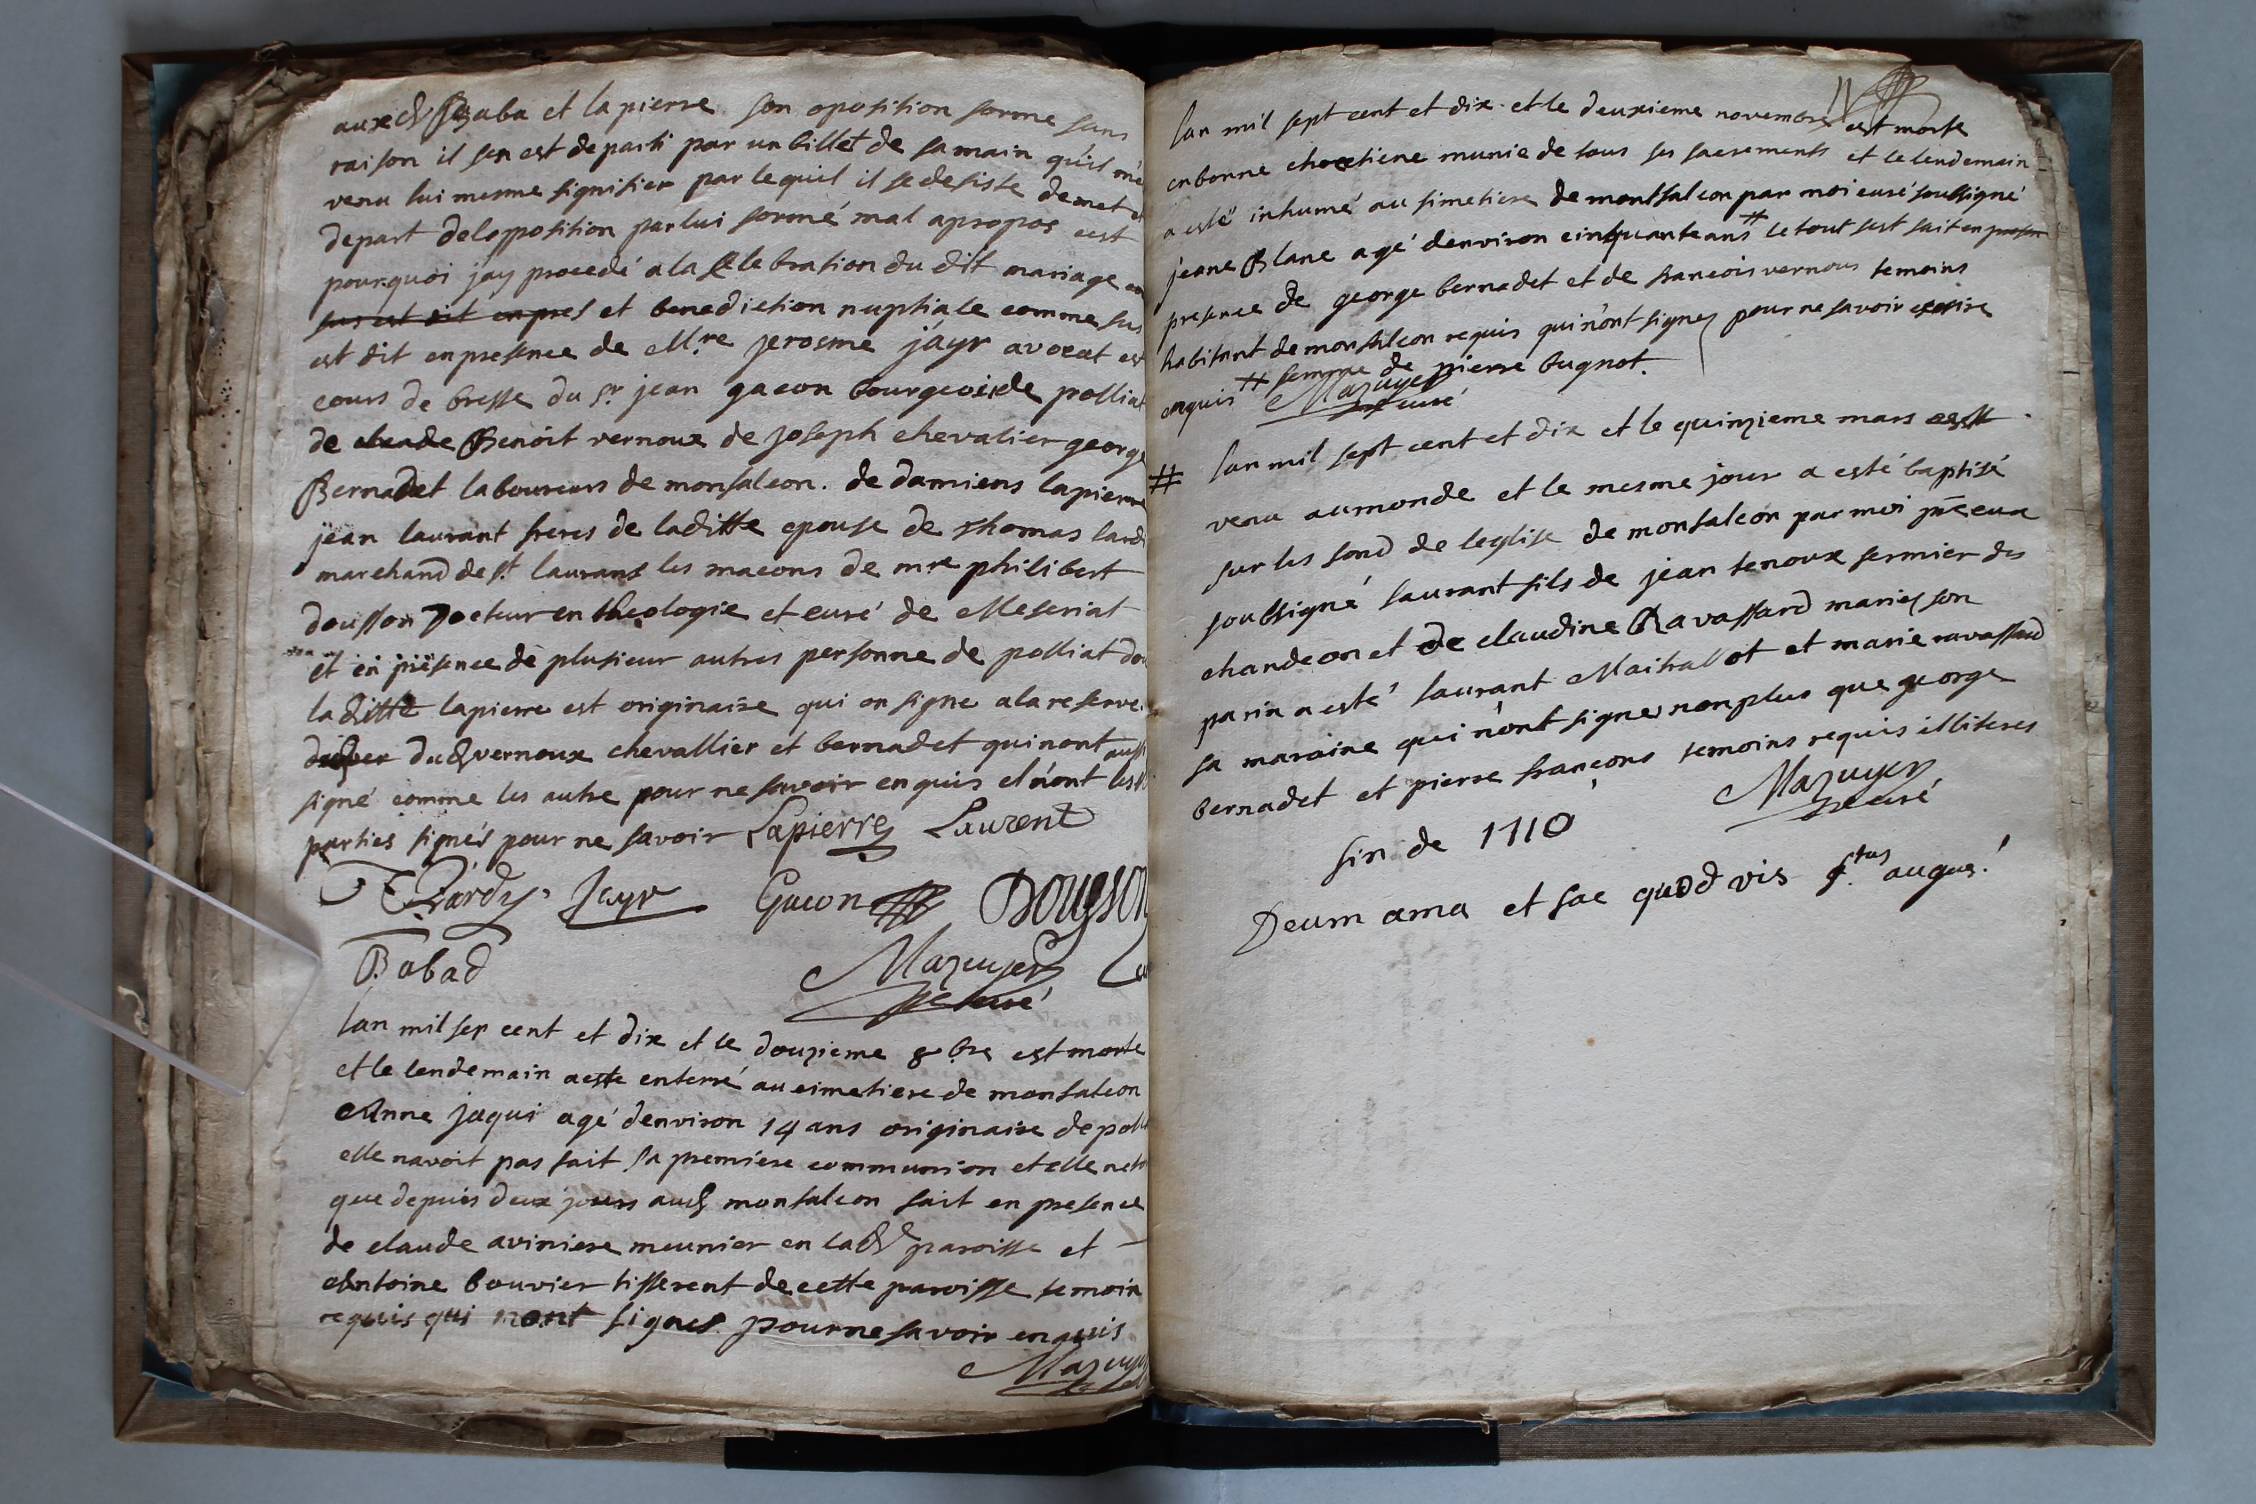 aux et lapierre son oposition forme sans
raison il sen est departi par un billet de sa main qu'il m'e
venu lui mesme signifier par lequil il se desiste demet et
depart delopposition par lui formé mal apropos cest
pourquoi jay procedé a la celebration du dit mariage en
sus est dit en pres et benediction nuptiale comme sus
est dit en presence de Mre jerosme jayr avocat es
cours de bresse du sr jean gacon bourgeois de polliat
de claude Benoit vernoux de joseph chevalier george
Bernadet laboureurs de monfalcon. de damiens lapierre
jean laurant freres de laditte epouse de thomas lardi
marchand de st laurans les macons de mre philibert
dousson docteur en theologie et curé de Meseriat
et en présence de plusieur autres personne de polliat do
laditte lapierre est originaire qui on signe a la reserve
dud vernoux chevallier et bernadet qui nont aussi
signé comme les autre pour ne savoir enquis et n'ont les
parties signés pour ne savoir Lapierre Laurent
TLardy Jayr Gacon Dousson
Babad Mazuyer
curé
lan mil sep cent et dix et le douzieme 8bre est morte
et le lendemain a este enterré au cimetiere de monfalcon
Anne jaqui agé denviron 14 ans originaire de poll
elle navoit pas fait sa premiere communion et elle net
que depuis deux jours aud monfalcon fait en presence
de claude aviniere meunier en lad paroisse et
Antoine bouvier tisserent de cette paroisse temoin
requis qui nont signes pour ne savoir enquis
Mazuyer
11
lan mil sept cent et dix et le deuxieme novembre est morte
en bonne chretiene munie de tous ses sacrements et le lendemain
a esté inhumé au simetiere de montfalcon par moi curé soubsigné
jeane Blanc agé denviron cinquante ans # le tout sest fait en presen
presence de george bernadet et de francois vernous temoins
habitant de monfalcon requis qui n'ont signez pour ne savoir escrire
enquis # femme de pierre bugnot.
Mazuyer
curé
# lan mil sept cent et dix et le quinzieme mars est
venu au monde et le mesme jour a esté baptisé
sur les fond de leglise de monfalcon par moi pre cure
soubsigné laurant fils de jean tenoux fermier des
chandeon et de claudine Ravassard mariez son
parin a esté laurant Maitrallot et marie ravassard
sa maraine qui n'ont signer non plus que george
bernadet et pierre françons temoins requis illiteres
Mazuyer
curé
fin de 1710
Deum ama et fac quod vis s.tus augus.